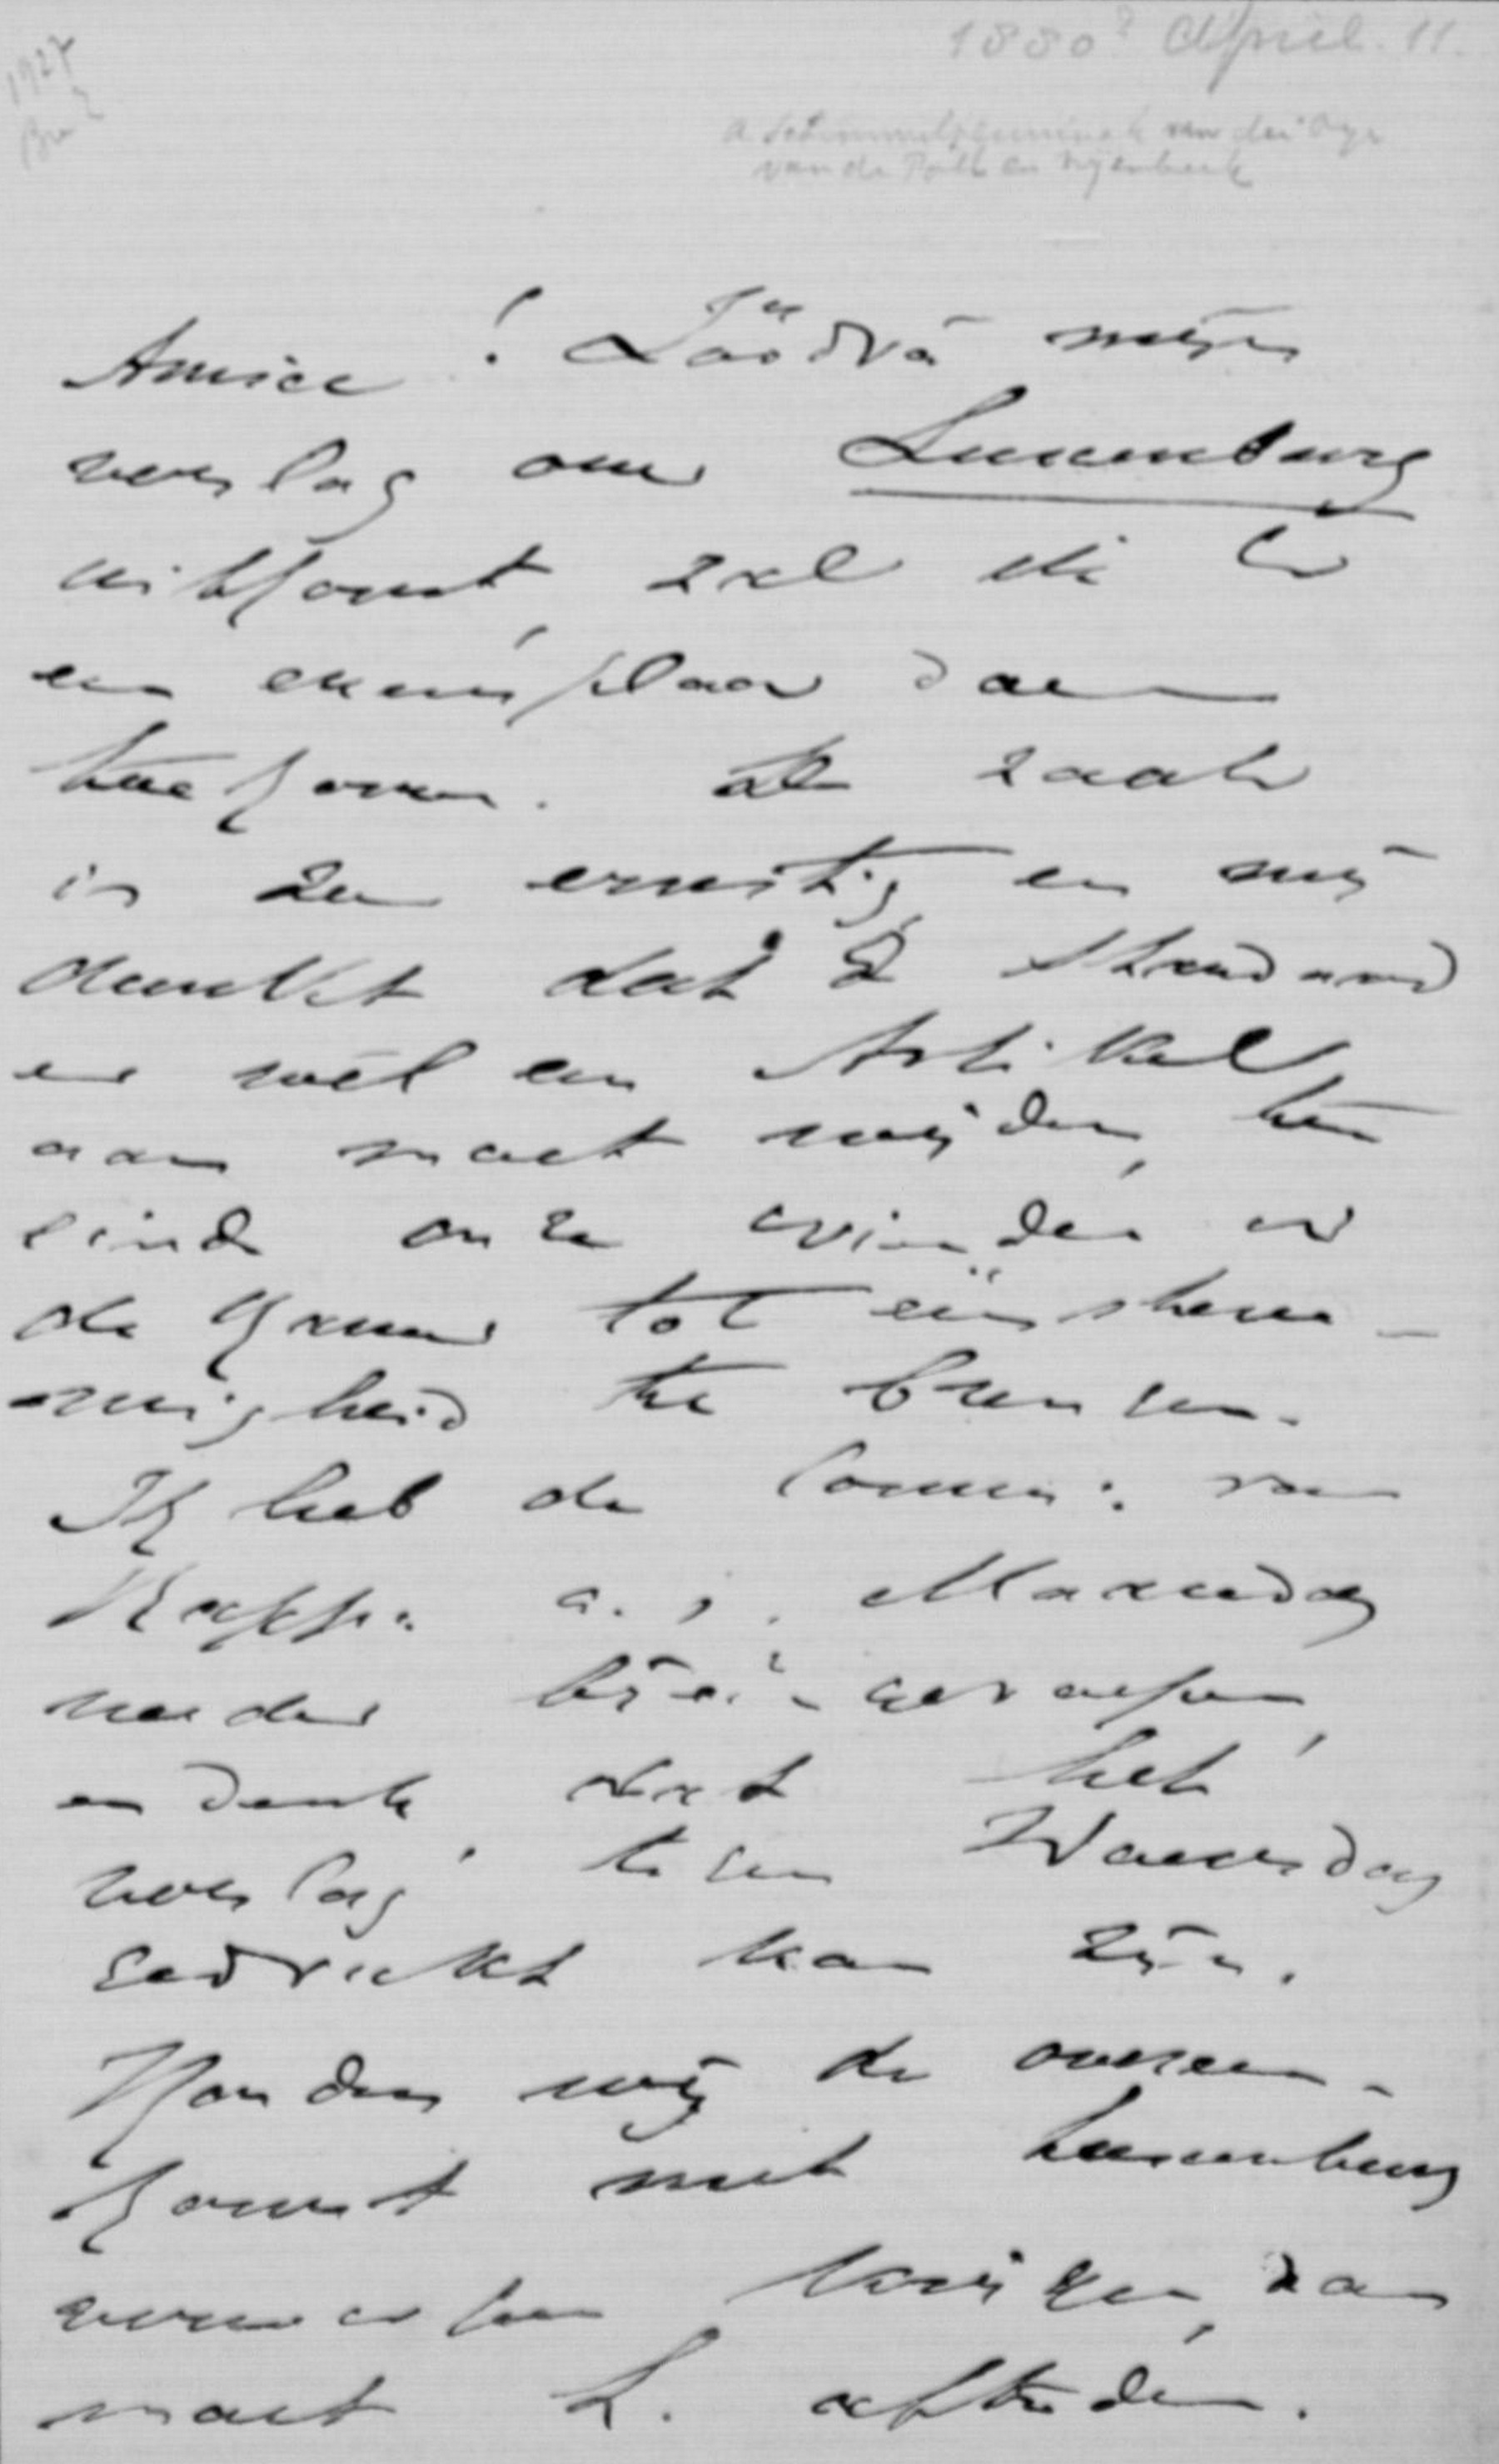 1927
1880? April. 11.
a. Schimmelpenninck van der Oye
van de Poll en Nijenbeek
Amice! Zoodra mijn
verslag over Luxemburg
uitkomt, zal ik U
een exemplaar doen
toekomen. De zaak
is zeer ernstig, en mij
dunkt dat de Standaard
er wel een Artikel
aan moet wijden, ten
einde onze vrienden in
de Kamer tot eenstem-
migheid te brengen.
Ik heb de Comm: van
Rapp: a. s. Maandag
nader bijeengeroepen,
en denk dat het
verslag tegen Woensdag
gedrukt kan zijn.
Konden wij de overeen-
komst met Luxemburg
verworpen krijgen, dan
moet L. aftreden.